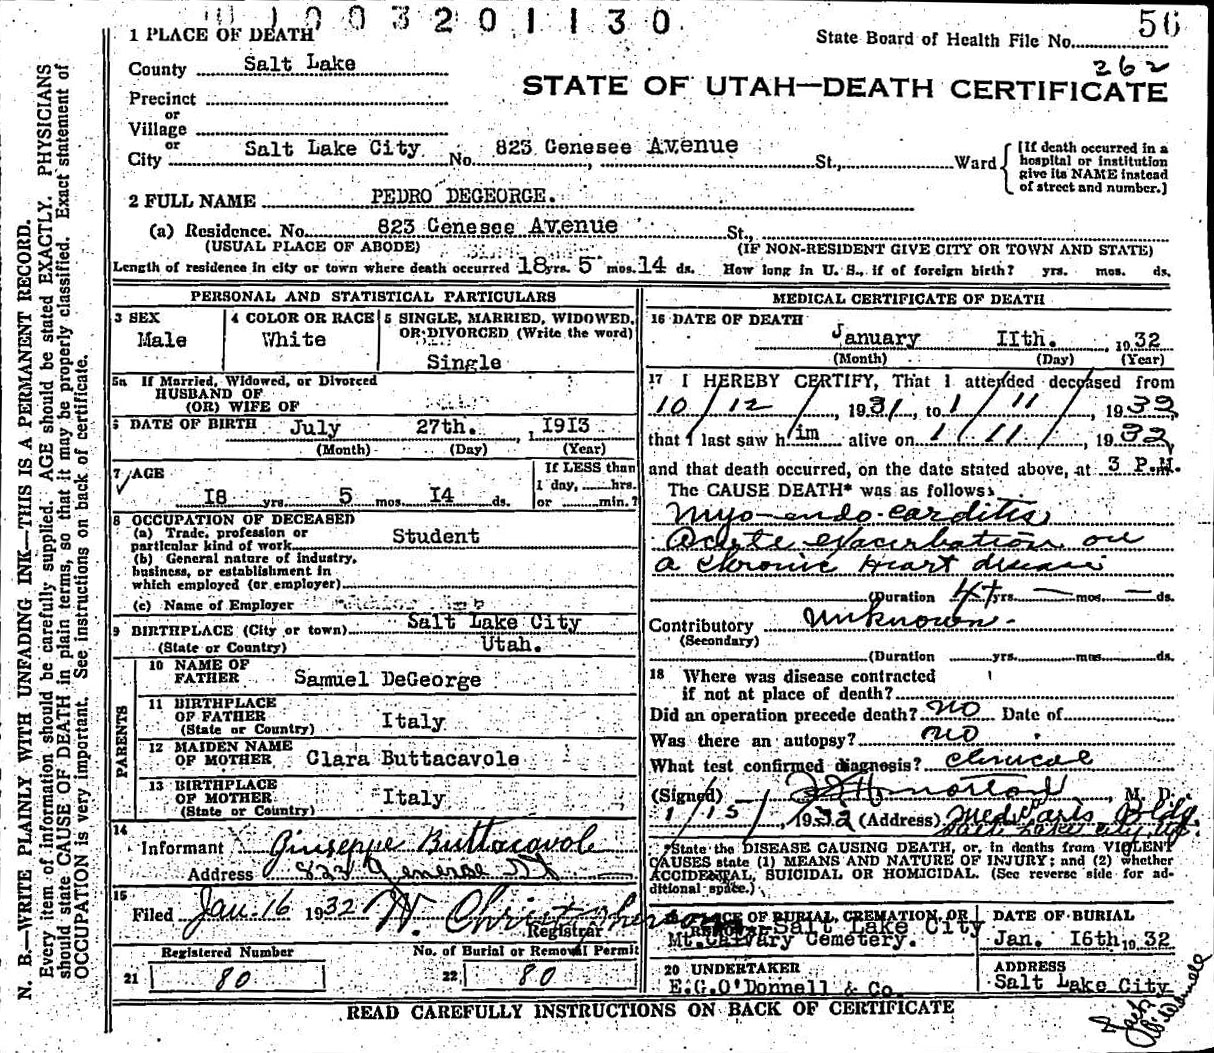 1003201130
1 PLACE OF DEATH
State Board of Health File No. 56
262
County Salt Lake
STATE OF UTAH—DEATH CERTIFICATE
Precinct
or
Village
or
City Salt Lake City No. 823 Genesee Avenue St., Ward
[If death occurred in a
hospital or institution
give its NAME instead
of street and number.]
2 FULL NAME PEDRO DEGEORGE.
(a) Residence. No. 823 Genesee Avenue St.,
(USUAL PLACE OF ABODE) (IF NON-RESIDENT GIVE CITY OR TOWN AND STATE)
Length of residence in city or town where death occurred 18 yrs. 5 mos. 14 ds. How long in U. S., if of foreign birth? yrs. mos. ds.
PERSONAL AND STATISTICAL PARTICULARS
3 SEX
Male
4 COLOR OR RACE
White
5 SINGLE, MARRIED, WIDOWED,
OR DIVORCED (Write the word)
Single
5a If Married, Widowed, or Divorced
HUSBAND OF
(OR) WIFE OF
6 DATE OF BIRTH July 27th. 1913
(Month) (Day) (Year)
7 AGE
I8 yrs. 5 mos. I4 ds.
If LESS than
1 day, hrs.
or min.?
8 OCCUPATION OF DECEASED
(a) Trade, profession or
particular kind of work Student
(b) General nature of industry,
business, or establishment in
which employed (or employer)
(c) Name of Employer
9 BIRTHPLACE (City or town) Salt Lake City
(State or Country) Utah.
PARENTS
10 NAME OF
FATHER Samuel DeGeorge
11 BIRTHPLACE
OF FATHER
(State or Country) Italy
12 MAIDEN NAME
OF MOTHER Clara Buttacavole
13 BIRTHPLACE
OF MOTHER
(State or Country) Italy
14
Informant Giuseppe Buttacavole
Address 823 Genesee
15
Filed Jan. 16 1932 W. Christopherson
Registrar
Registered Number
21 80
No. of Burial or Removal Permit
22 80
MEDICAL CERTIFICATE OF DEATH
16 DATE OF DEATH
January IIth. 1932
(Month) (Day) (Year)
17 I HEREBY CERTIFY, That I attended deceased from
10/12/, 1931/, to 1/11/, 1932
that I last saw him alive on 1/11/, 1932,
and that death occurred, on the date stated above, at 3 P.M.
The CAUSE DEATH* was as follows:
Myo-endo-carditis
Acute exacerbation on
a chronic Heart disease
(Duration 4+ yrs. — mos. — ds.
Contributory Unknown.
(Secondary)
(Duration yrs. mos. ds.
18 Where was disease contracted
if not at place of death?
Did an operation precede death? no Date of
Was there an autopsy? no
What test confirmed diagnosis? clinical
(Signed) M. D.
1/15/, 1932 (Address) Med Arts Bldg.
Salt Lake City Ut.
*State the DISEASE CAUSING DEATH, or, in deaths from VIOLENT
CAUSES state (1) MEANS AND NATURE OF INJURY; and (2) whether
ACCIDENTAL, SUICIDAL OR HOMICIDAL. (See reverse side for ad-
ditional space.)
PLACE OF BURIAL, CREMATION, OR
REMOVAL Salt Lake City
Mt. Calvary Cemetery.
DATE OF BURIAL
Jan. I6th 1932
20 UNDERTAKER
E.G.O'Donnell & Co.
ADDRESS
Salt Lake City
READ CAREFULLY INSTRUCTIONS ON BACK OF CERTIFICATE
N. B.—WRITE PLAINLY WITH UNFADING INK—THIS IS A PERMANENT RECORD.
Every item of information should be carefully supplied. AGE should be stated EXACTLY. PHYSICIANS
should state CAUSE OF DEATH in plain terms, so that it may be properly classified. Exact statement of
OCCUPATION is very important. See instructions on back of certificate.